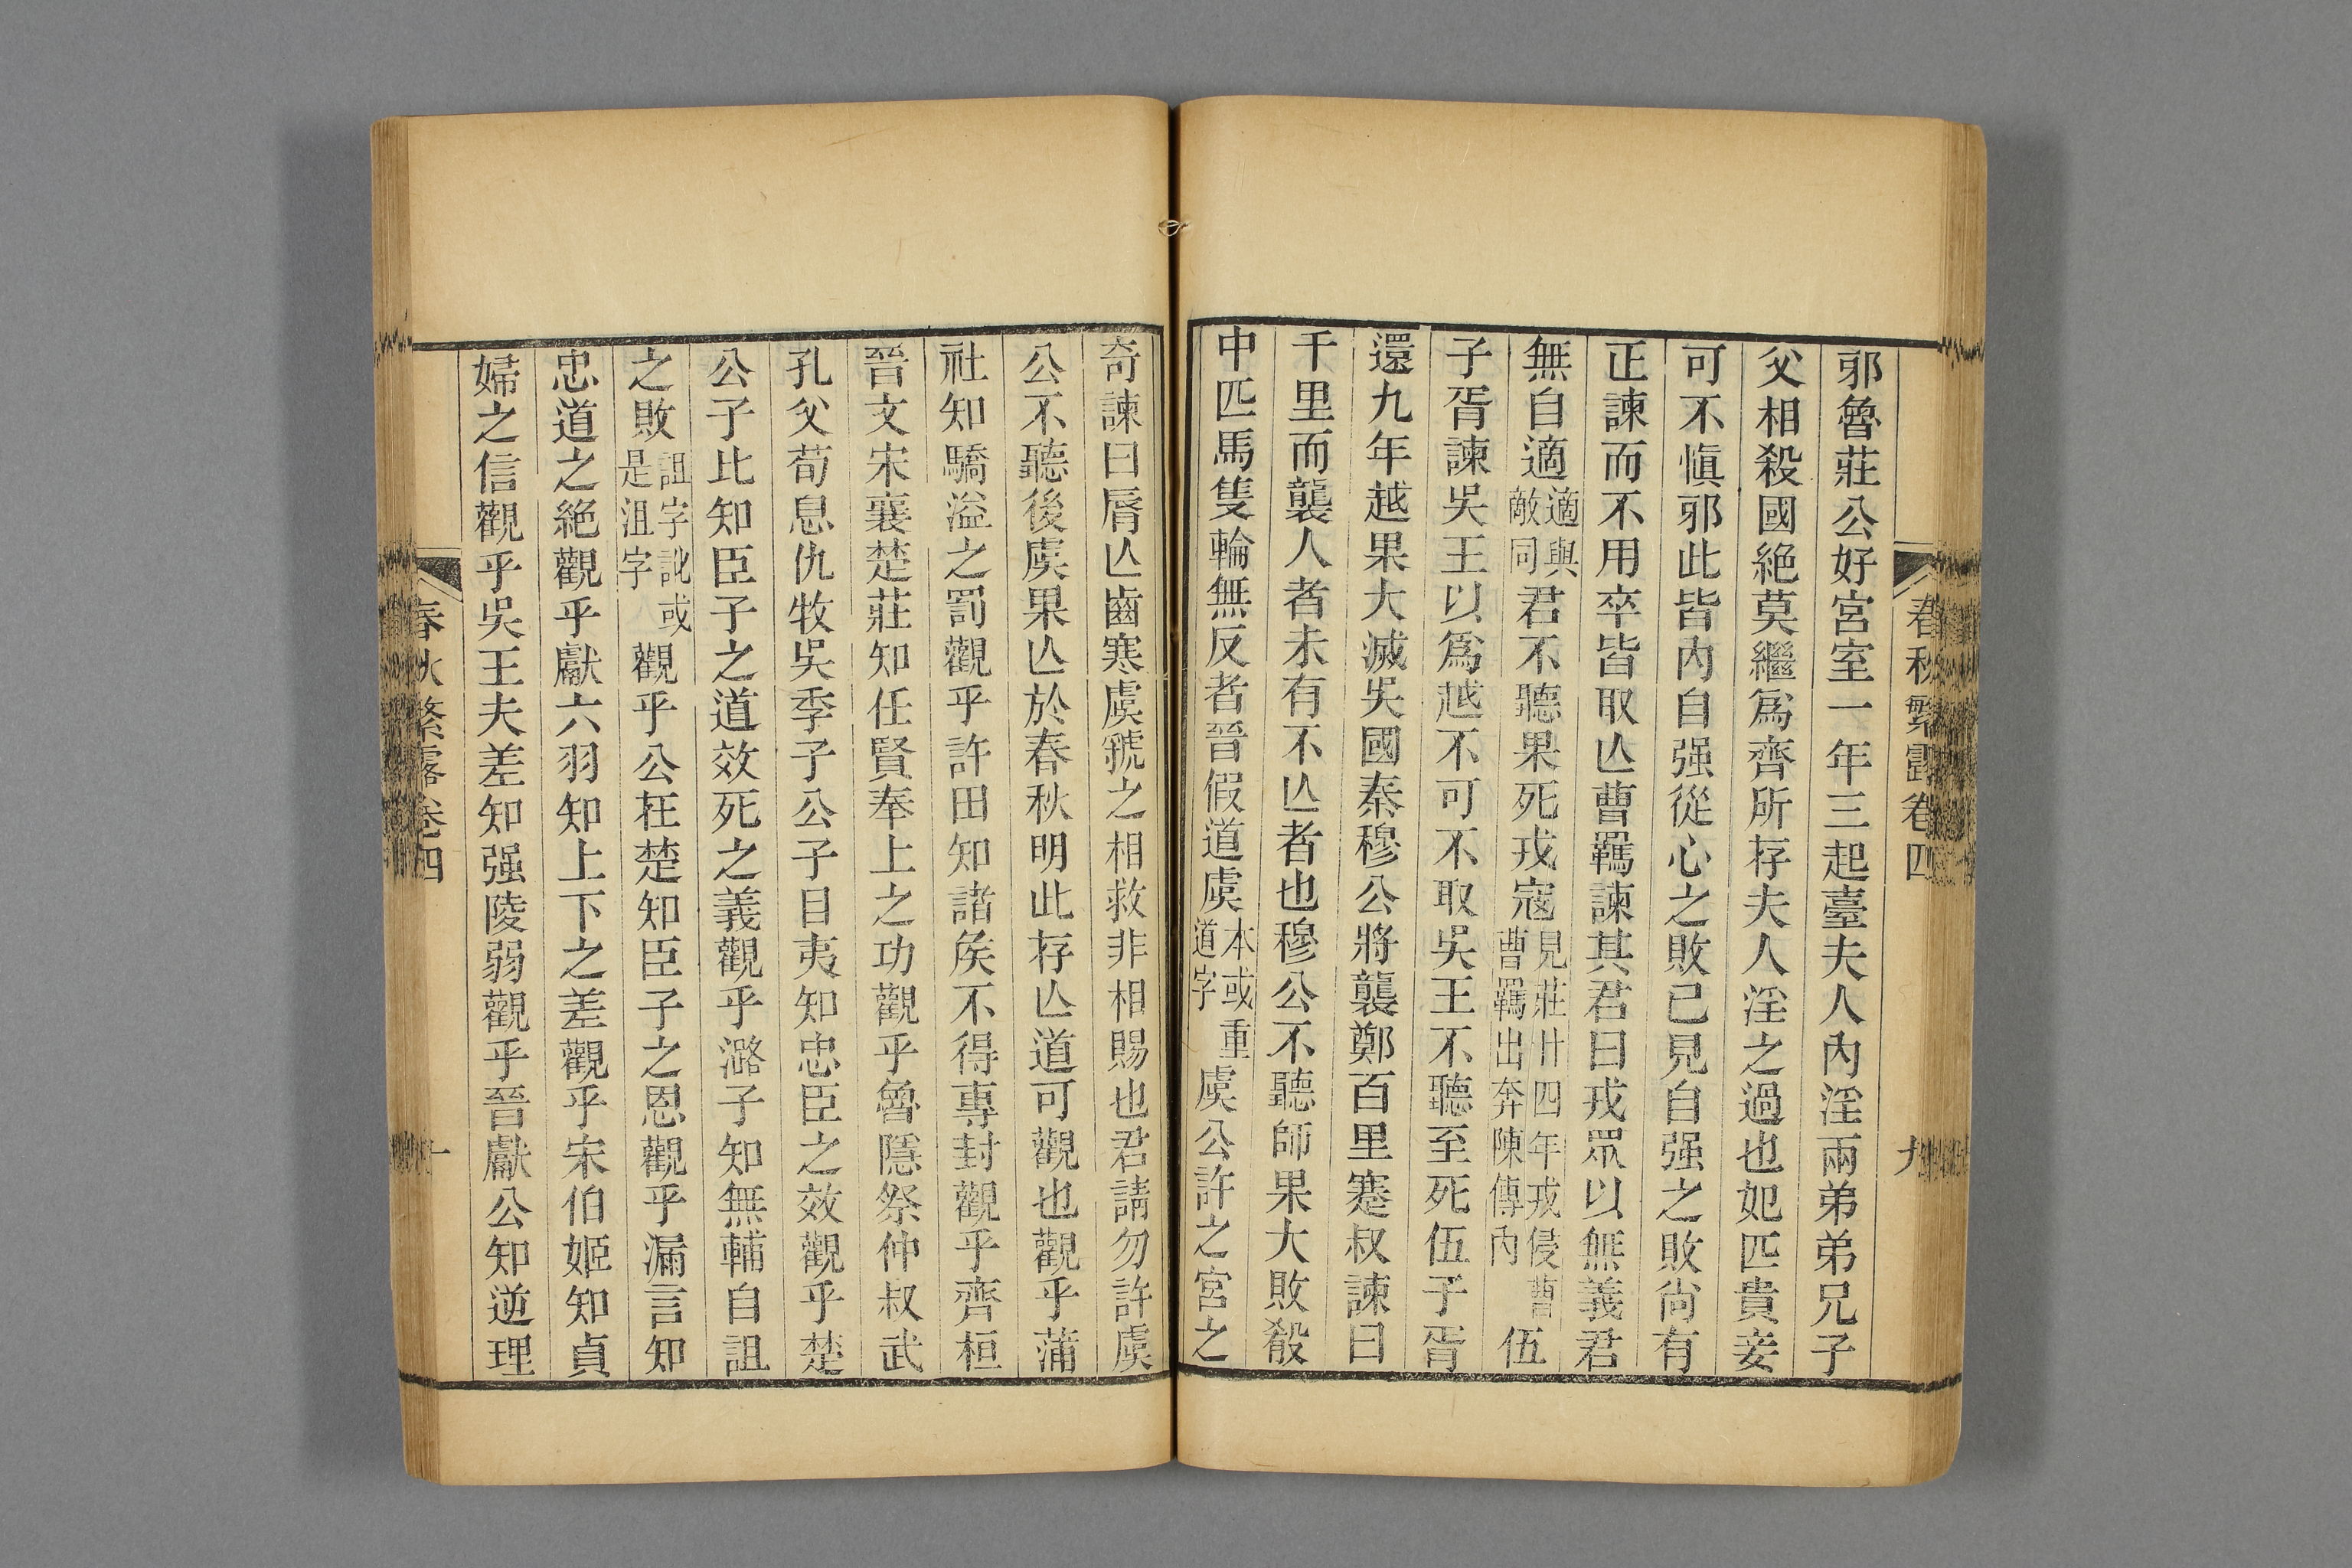 春秋繁露卷四
九
郭魯莊公好宮室一年三起臺夫人內淫兩弟弟兄子
父相殺國絕莫繼爲齊所存夫人淫之過也妃匹貴妾
可不慎郭此皆內自强從心之敗已見自强之敗尙有
正諫而不用卒皆取亾曹羈諫其君曰戎眾以無義君
無自適適與敵同君不聽果死戎寇見莊廿四年戎侵曹曹羈出奔陳傳內伍
子胥諫吳王以爲越不可不取吳王不聽至死伍子胥
還九年越果大滅吳國秦穆公將襲鄭百里蹇叔諫曰
千里而襲人者未有不亾者也穆公不聽師果大敗殽
中匹馬隻輪無反者晉假道虞本或重道字虞公許之宮之
奇諫曰脣亾齒寒虞虢之相救非相賜也君請勿許虞
公不聽後虞果亾於春秋明此存亾道可觀也觀乎蒲
社知驕溢之罰觀乎許田知諸矦不得專封觀乎齊桓
晉文宋襄楚莊知任賢奉上之功觀乎魯隱祭仲叔武
孔父荀息仇牧吳季子公子目夷知忠臣之效觀乎楚
公子比知臣子之道效死之義觀乎潞子知無輔自詛
之敗詛字訛或是沮字觀乎公在楚知臣子之恩觀乎漏言知
忠道之絕觀乎獻六羽知上下之差觀乎宋伯姬知貞
婦之信觀乎吳王夫差知强陵弱觀乎晉獻公知逆理
春秋繁露卷四
十